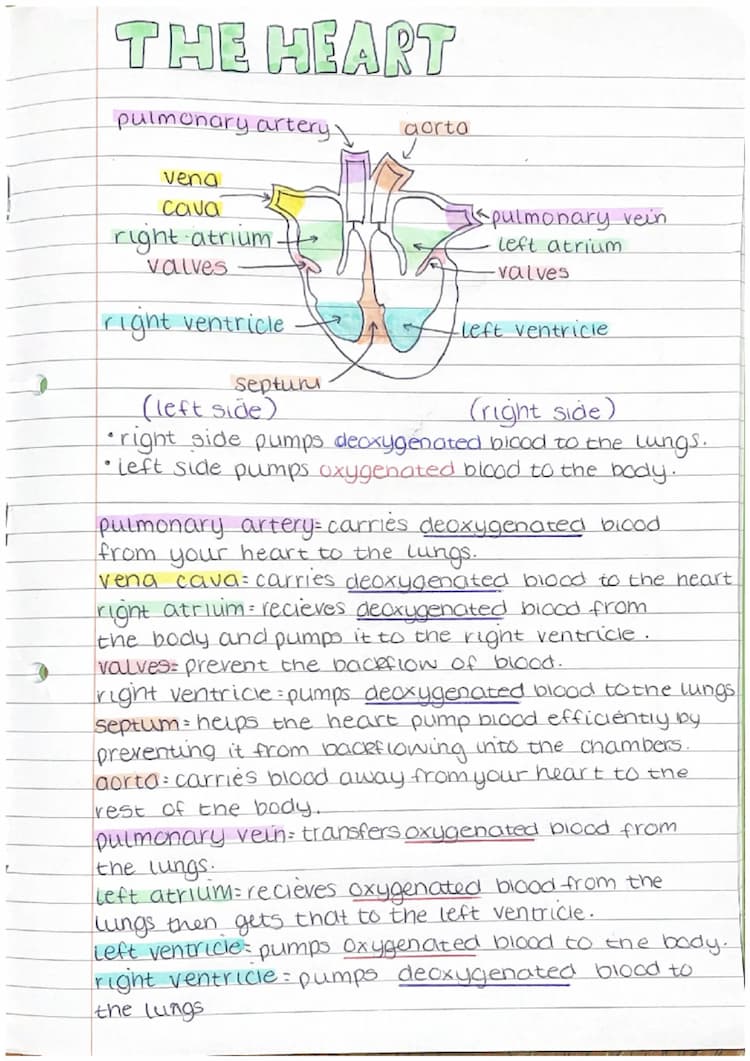 THE HEART
pulmonary artery
aorta
vena
cava
pulmonary vein
right atrium
left atrium
valves
valves
right ventricle
left ventricle
septum
(left side) (right side)
• right side pumps deoxygenated blood to the lungs.
• left side pumps oxygenated blood to the body.
pulmonary artery= carries deoxygenated blood
from your heart to the lungs.
vena cava= carries deoxygenated blood to the heart
right atrium= recieves deoxygenated blood from
the body and pumps it to the right ventricle.
valves= prevent the backflow of blood.
right ventricle= pumps deoxygenated blood to the lungs
septum= helps the heart pump blood efficiently by
preventing it from backflowing into the chambers.
aorta= carries blood away from your heart to the
rest of the body.
pulmonary vein= transfers oxygenated blood from
the lungs.
left atrium= recieves oxygenated blood from the
lungs then gets that to the left ventricle.
left ventricle= pumps oxygenated blood to the body.
right ventricle= pumps deoxygenated blood to
the lungs